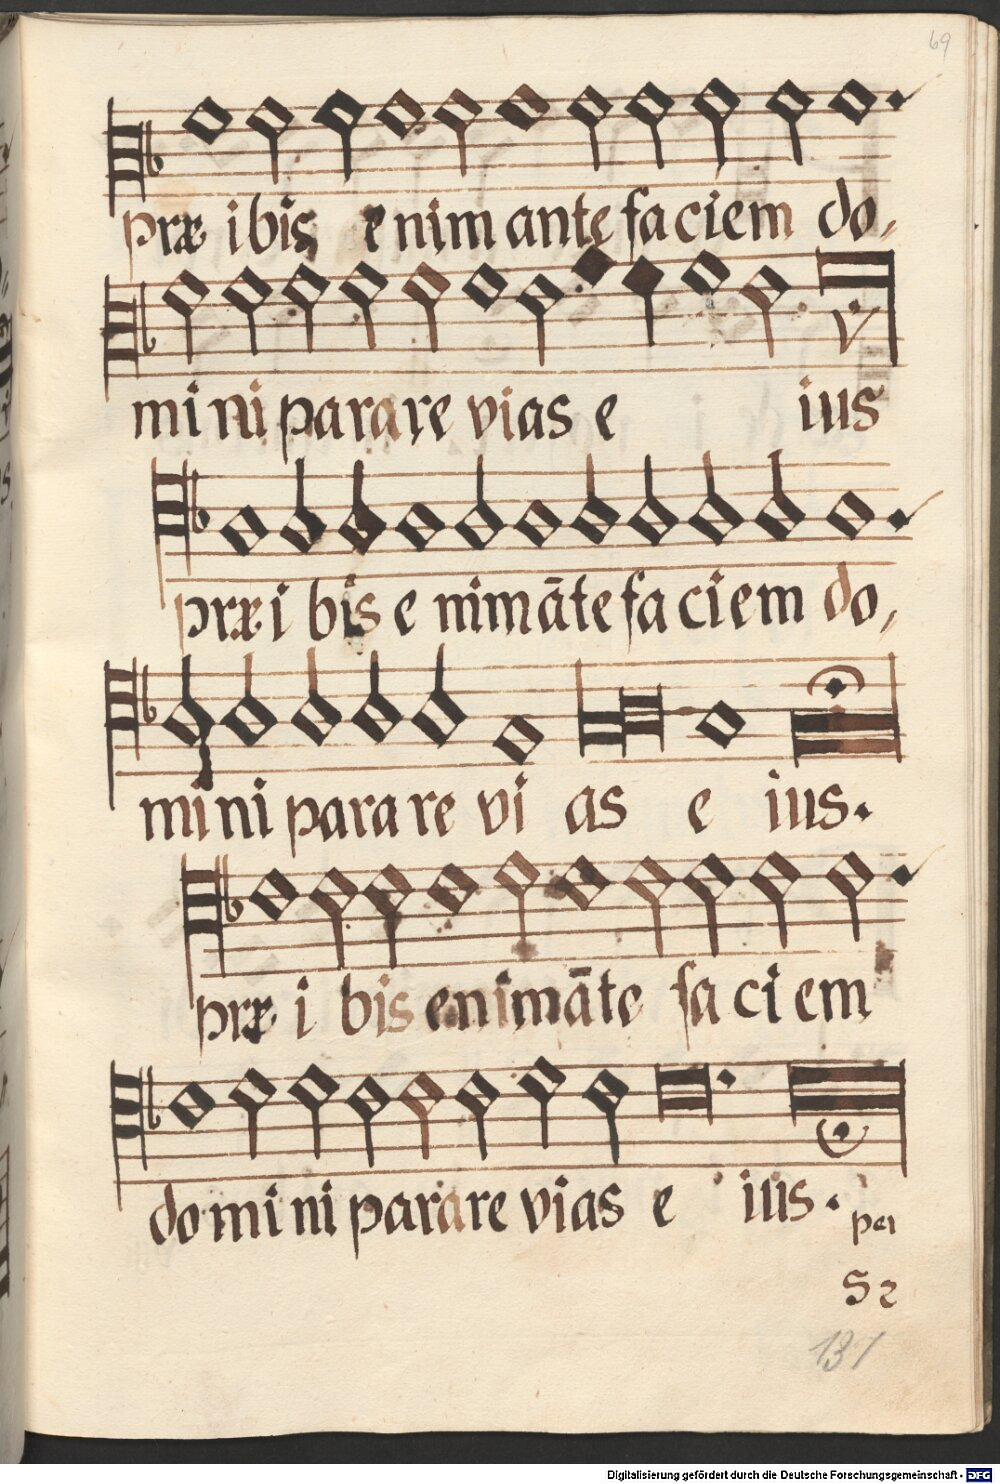 69
præ ibis enim ante faciem do,
mini parare vias e ius
præ i bis e nim āte fa ciem do,
mini parare vi as e ius.
præ i bis enim āte fa ci em
domini parare vias e ius.
per
S 2
131
Digitalisierung gefördert durch die Deutsche Forschungsgemeinschaft - DFG